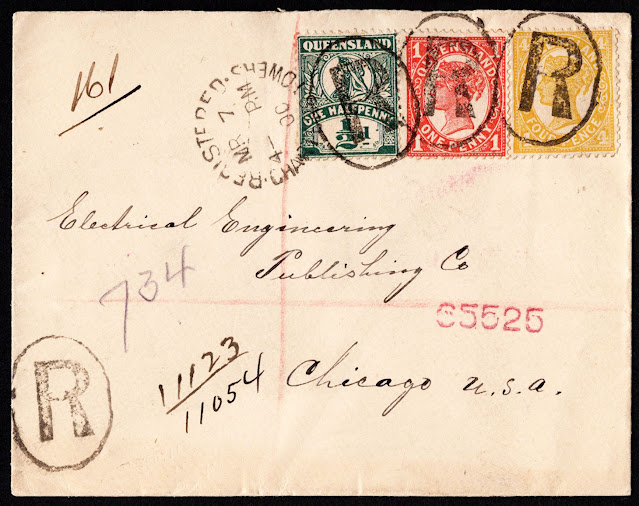 161
REGISTERED
MR 7
4 - PM
00
QUEENSLAND
ONE HALFPENNY
½d
QUEENSLAND
ONE PENNY
1 1
1
R
R
R
FOUR PENCE
Electrical Engineering
Publishing Co
734
65525
11123
11054
Chicago U.S.A.
R